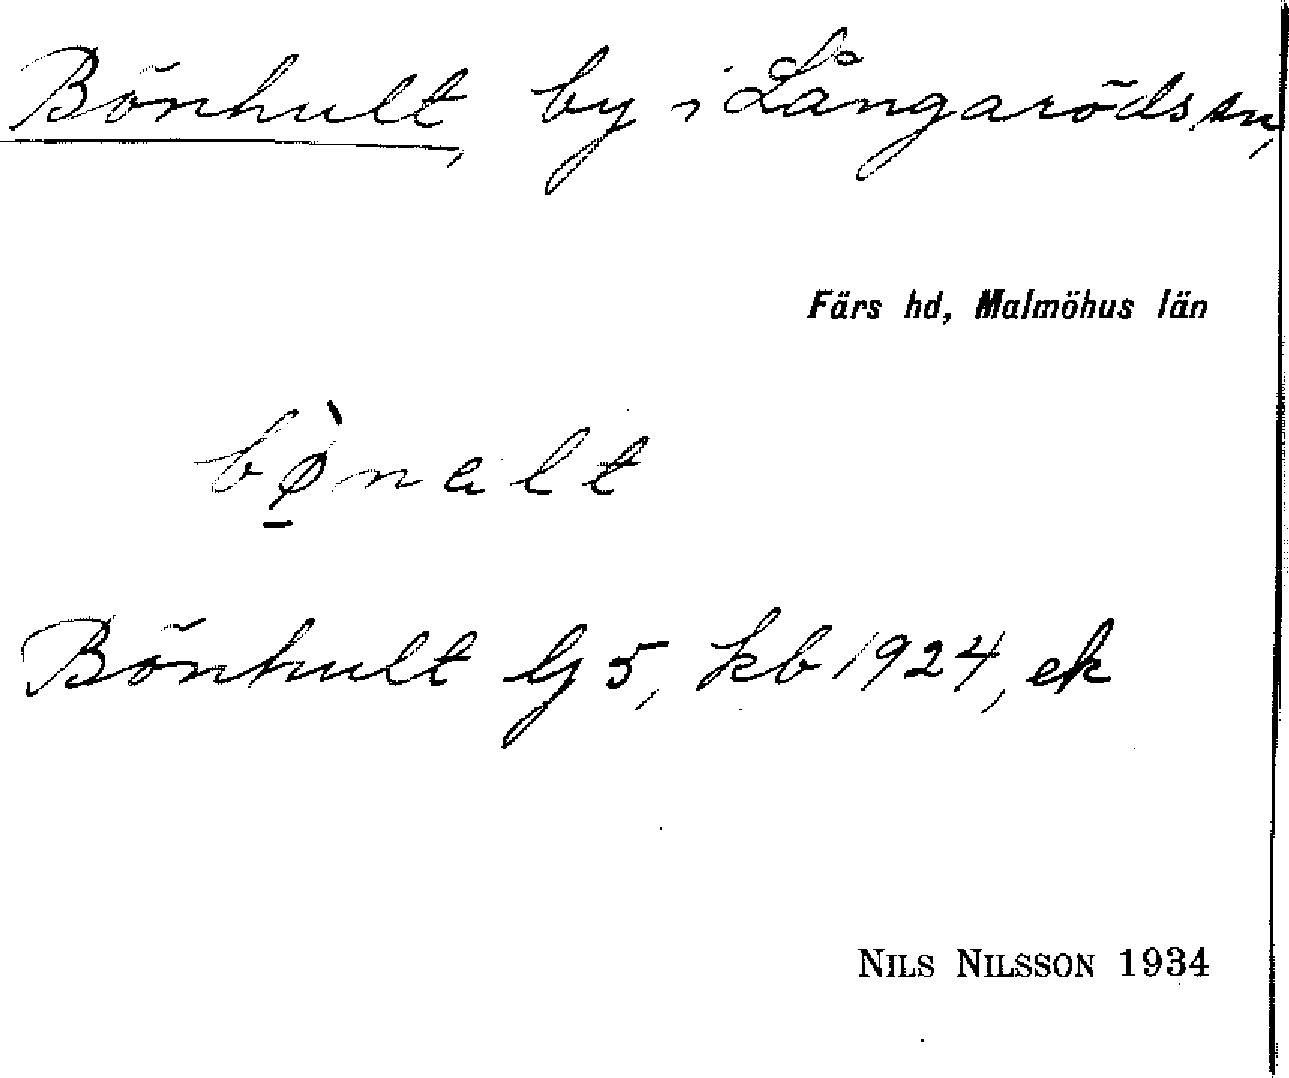 Bönhult, by i Långaröds sn,
Färs hd, Malmöhus län
bø̠̀nalt
Bönhult bg 5, kb 1924, ek
NILS NILSSON 1934